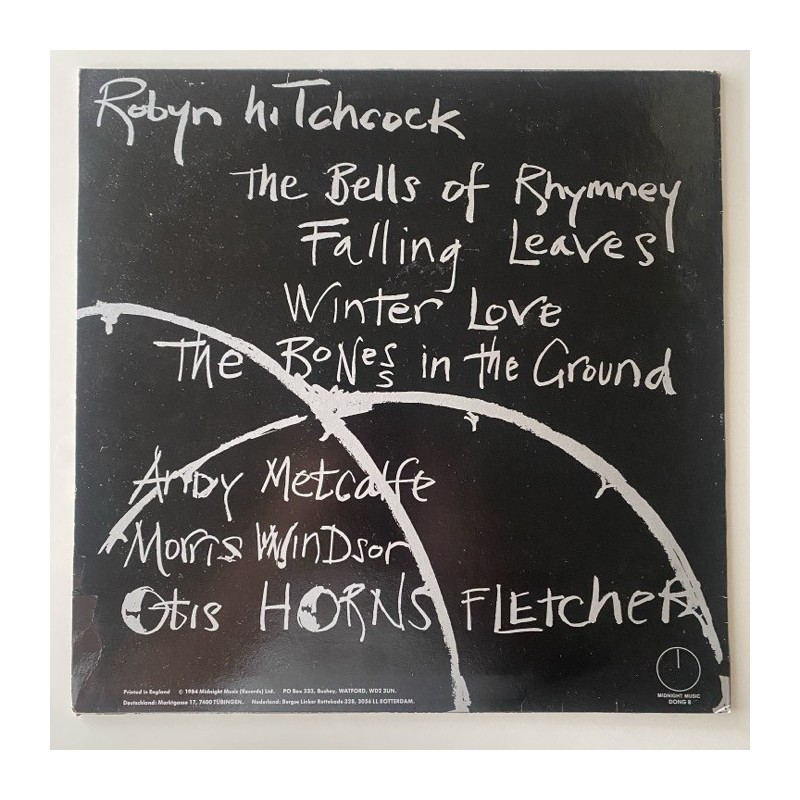 Robyn hiTchcock
The Bells of Rhymney
Falling Leaves
Winter Love
The BoNes in the Ground
Andy Metcalfe
Morris WinDsor
Otis HORNS FLetcheR
Printed in England © 1984 Midnight Music (Records) Ltd. PO Box 333, Bushey, WATFORD, WD2 3UN.
Deutschland: Marktgasse 17, 7400 TÜBINGEN. Nederland: Bergse Linker Rottekade 328, 3056 LL ROTTERDAM.
MIDNIGHT MUSIC
DONG 8